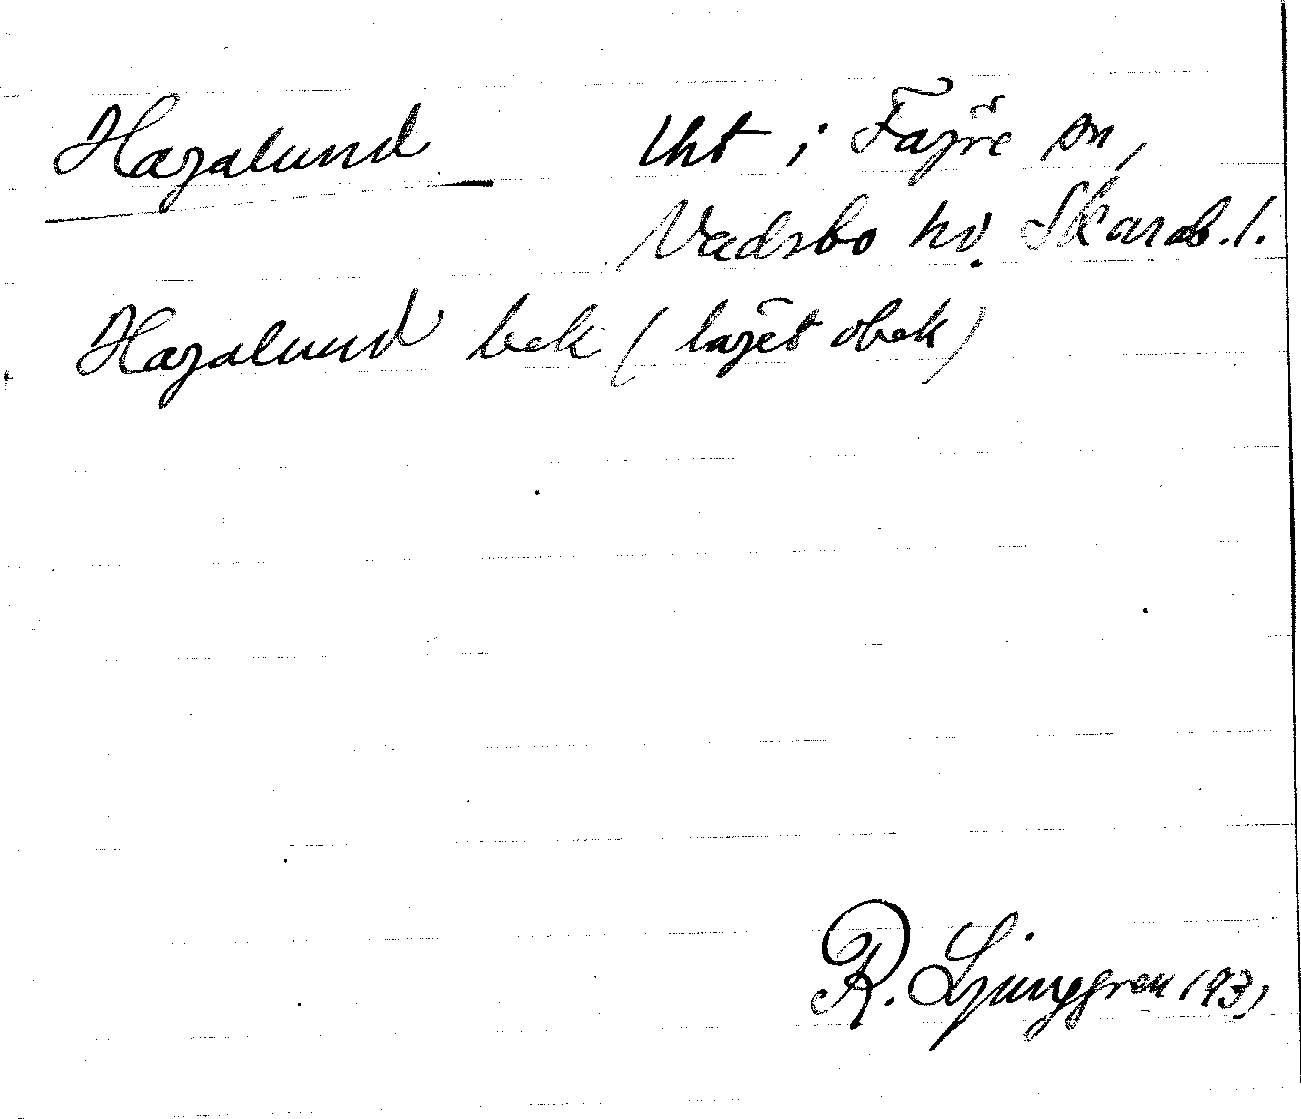 Hagalund lht i Fägre sn,
Vadsbo hd. Skarab. l.
Hagalund bek (läget obek)
R. Ljunggren 1931